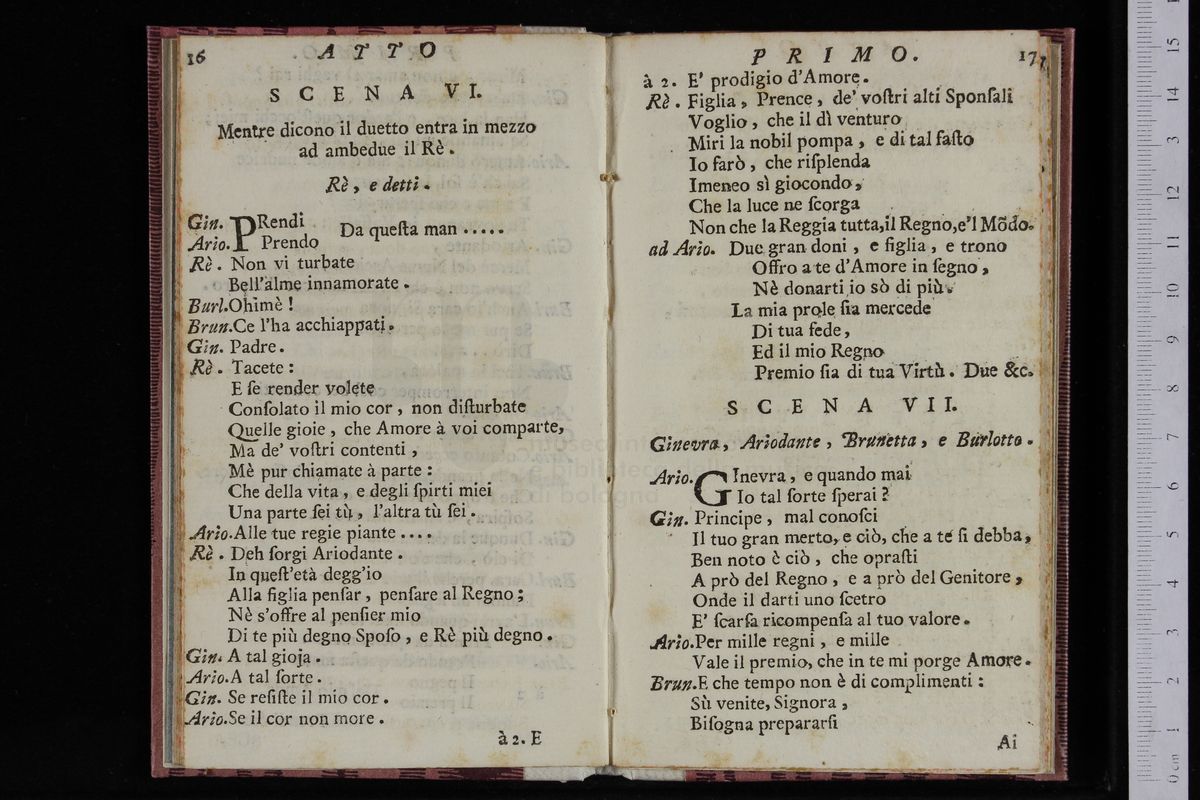 16 ATTO
SCENA VI.
Mentre dicono il duetto entra in mezzo
ad ambedue il Rè.
Rè, e detti.
Gin. PRendi
Ario. Prendo
Da queſta man .....
Rè. Non vi turbate
Bell'alme innamorate.
Burl. Ohimè!
Brun. Ce l'ha acchiappati.
Gin. Padre.
Rè. Tacete:
E ſe render volete
Conſolato il mio cor, non diſturbate
Quelle gioie, che Amore à voi comparte,
Ma de' voſtri contenti,
Mè pur chiamate à parte:
Che della vita, e degli ſpirti miei
Una parte ſei tù, l'altra tù ſei.
Ario. Alle tue regie piante ....
Rè. Deh ſorgi Ariodante.
In queſt'età degg'io
Alla figlia penſar, penſare al Regno;
Nè s'offre al penſier mio
Di te più degno Spoſo, e Rè più degno.
Gin. A tal gioja.
Ario. A tal ſorte.
Gin. Se reſiſte il mio cor.
Ario. Se il cor non more.
à 2. E
PRIMO. 17
à 2. E' prodigio d'Amore.
Rè. Figlia, Prence, de' voſtri alti Sponſali
Voglio, che il dì venturo
Miri la nobil pompa, e di tal faſto
Io farò, che riſplenda
Imeneo sì giocondo,
Che la luce ne ſcorga
Non che la Reggia tutta, il Regno, e'l Mõdo.
ad Ario. Due gran doni, e figlia, e trono
Offro a te d'Amore in ſegno,
Nè donarti io sò di più.
La mia prole ſia mercede
Di tua fede,
Ed il mio Regno
Premio ſia di tua Virtù. Due &c.
SCENA VII.
Ginevra, Ariodante, Brunetta, e Burlotto.
Ario. GInevra, e quando mai
Io tal ſorte ſperai?
Gin. Principe, mal conoſci
Il tuo gran merto, e ciò, che a te ſi debba,
Ben noto è ciò, che opraſti
A prò del Regno, e a prò del Genitore,
Onde il darti uno ſcetro
E' ſcarſa ricompenſa al tuo valore.
Ario. Per mille regni, e mille
Vale il premio, che in te mi porge Amore.
Brun. E che tempo non è di complimenti:
Sù venite, Signora,
Biſogna prepararſi
Ai